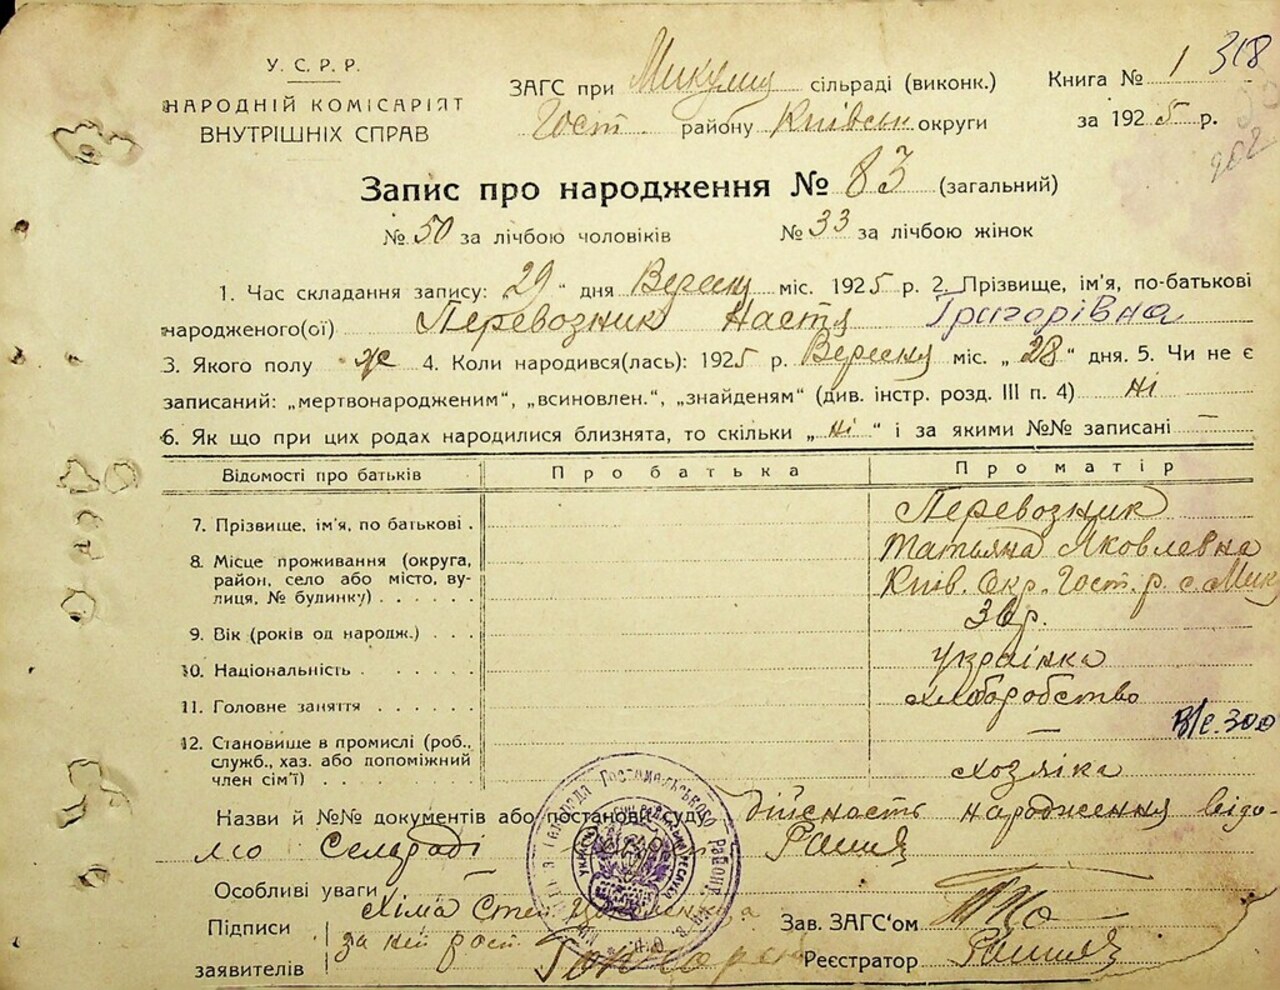 У. С. Р. Р.
НАРОДНІЙ КОМІСАРІЯТ
ВНУТРІШНІХ СПРАВ
ЗАГС при сільраді (виконк.)
Гост. району Київськ. округи
Книга № 1 318
за 1925 р.
Запис про народження № 83 (загальний)
№ 50 за лічбою чоловіків № 33 за лічбою жінок
1. Час складання запису: 29 " дня Вересня міс. 1925 р. 2. Прізвище, ім'я, по-батькові
народженого(ої) Перевозник Настя Григорівна
3. Якого полу ж 4. Коли народився(лась): 1925 р. Вересня міс. „ 28 “ дня. 5. Чи не є
записаний: „мертвонародженим“, „всиновлен.“, „знайденям“ (див. інстр. розд. III п. 4) ні
6. Як що при цих родах народилися близнята, то скільки „ ні “ і за якими №№ записані —
Відомості про батьків Про батька Про матір
7. Прізвище, ім'я, по батькові . Перевозник
Татьяна Яковлевна
8. Місце проживання (округа, район, село або місто, вулиця, № будинку) . . . . . . Київ. Окр. Гост. р. с. Мик
9. Вік (років од народж.) . . .
10. Національність . . . . . . Українка
11. Головне заняття . . . . . . хлборобство
В/с. 300
12. Становище в промислі (роб., служб., хаз. або допоміжний член сім'ї) . . . . . . . — хозяїка
Назви й №№ документів або постанови суду дійсність народження відо-
мо Сельраді
Особливі уваги
Підписи
заявителів
за неї рост.
Зав. ЗАГС‘ом
Реєстратор